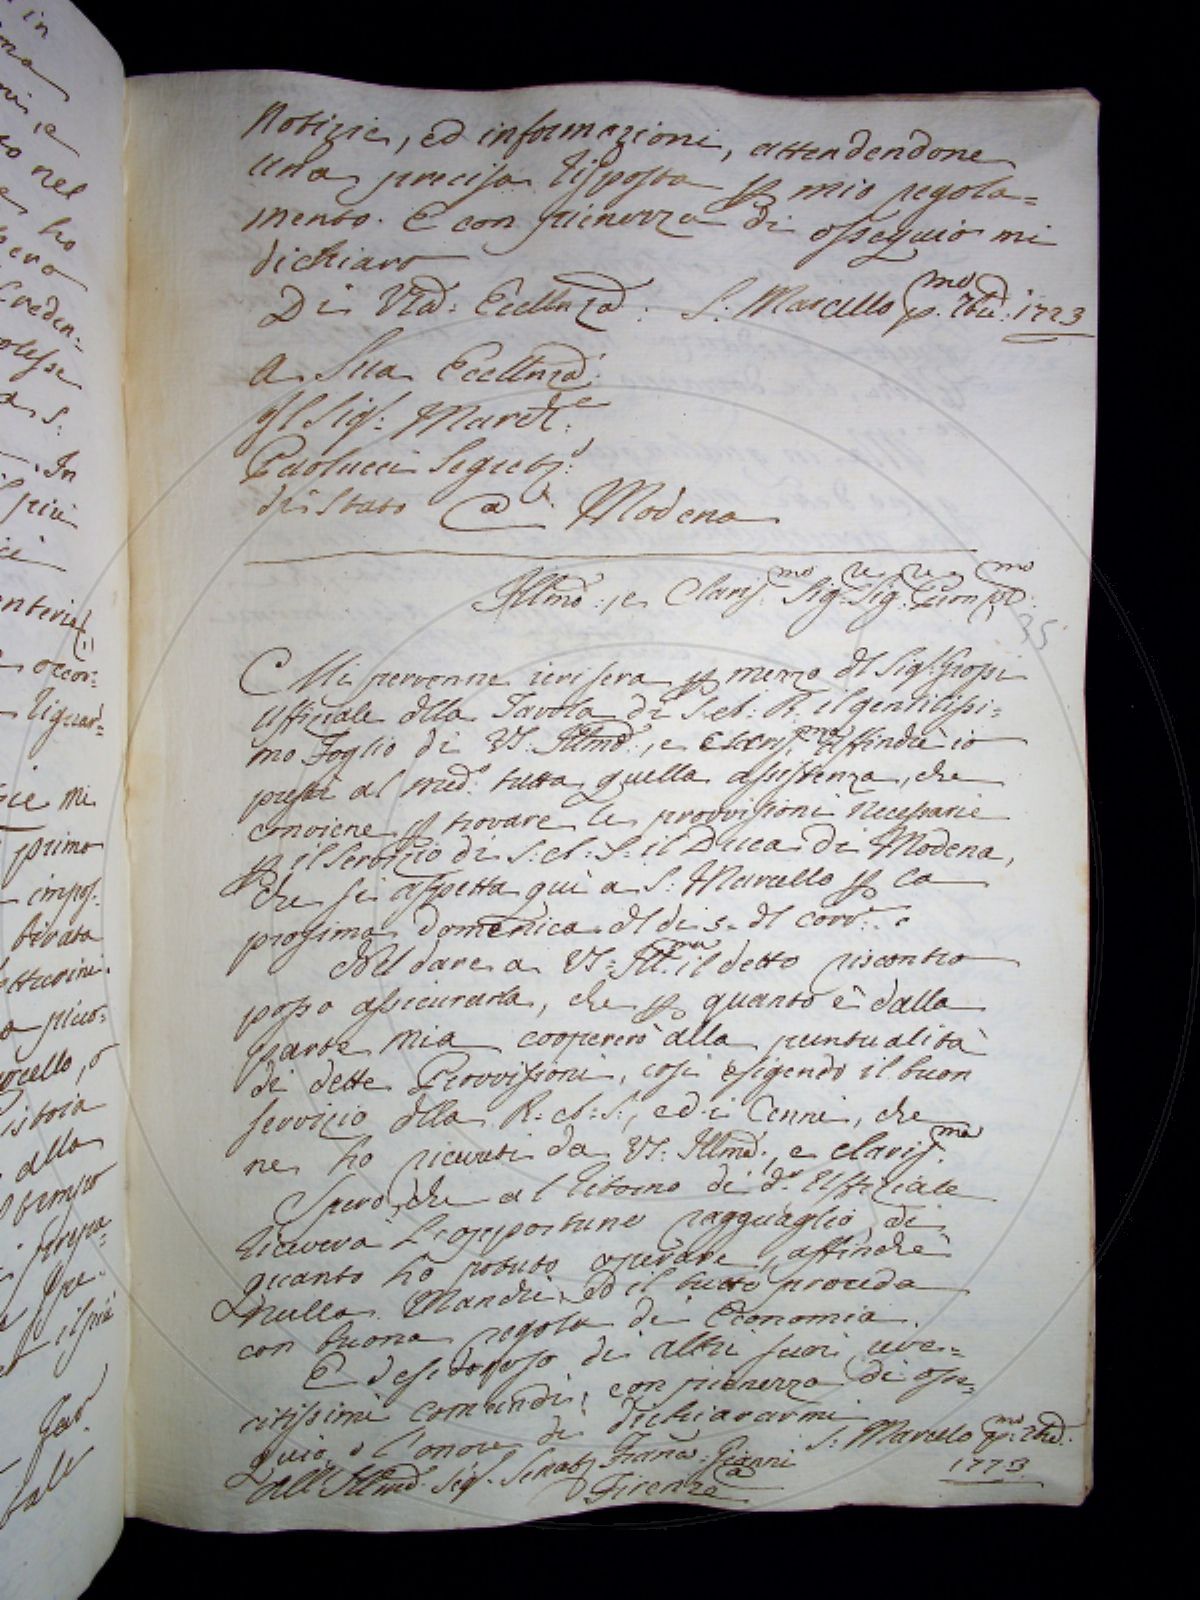 Notizie, ed informazioni, attendendone
una precisa risposta p mio regola=
mento. E con pienezza di ossequio mi
dichiaro
Di Vra: Ecellnza: S: Marcello pmo 7bre: 1773
A Sua Ecellnza:
Il Sig: March:e
Paolucci Segret:
di Stato a Modena
Illmo:, e Claris:mo Sig:re Sig:re Pron
35
Mi pervenne ierisera p mezzo dl Sig: Grossi
Uffiziale dlla Tavola di S: A: R: il gentilissi=
mo Foglio di VS: Illma:, e Claris:ma affinchè io
presti al med:o tutta quella assistenza, che
conviene p trovare le provvisioni necessarie
p il servizio di S: A: S: il Duca di Modena,
che si aspetta quì a S: Marcello p la
prossima domenica dl dì 5. dl corr:e.
Nel dare a VS: Ill:ma il detto riscontro
posso assicurarla, che p quanto è dalla
parte mia coopererò alla puntualità
di dette Provvisioni, così esigendo il buon
servizio dlla R: A: S:, ed i Cenni, che
ne ho ricevuti da VS: Illma:, e Claris:ma
Spero, che al ritorno di d:o Uffiziale
riceverà l'opportuno ragguaglio di
quanto ho potuto operare, affinchè
nulla manchi, ed il tutto proceda
con buona regola di Economia.
E desideroso di altri suoi uve=
ritissimi comandi, con pienezza di osse=
quio, o l'onore di dichiararmi
S: Marcelo pmo 7bre:
1773
All Illmo: Sig: Senat: Franco: Gianni
Firenze